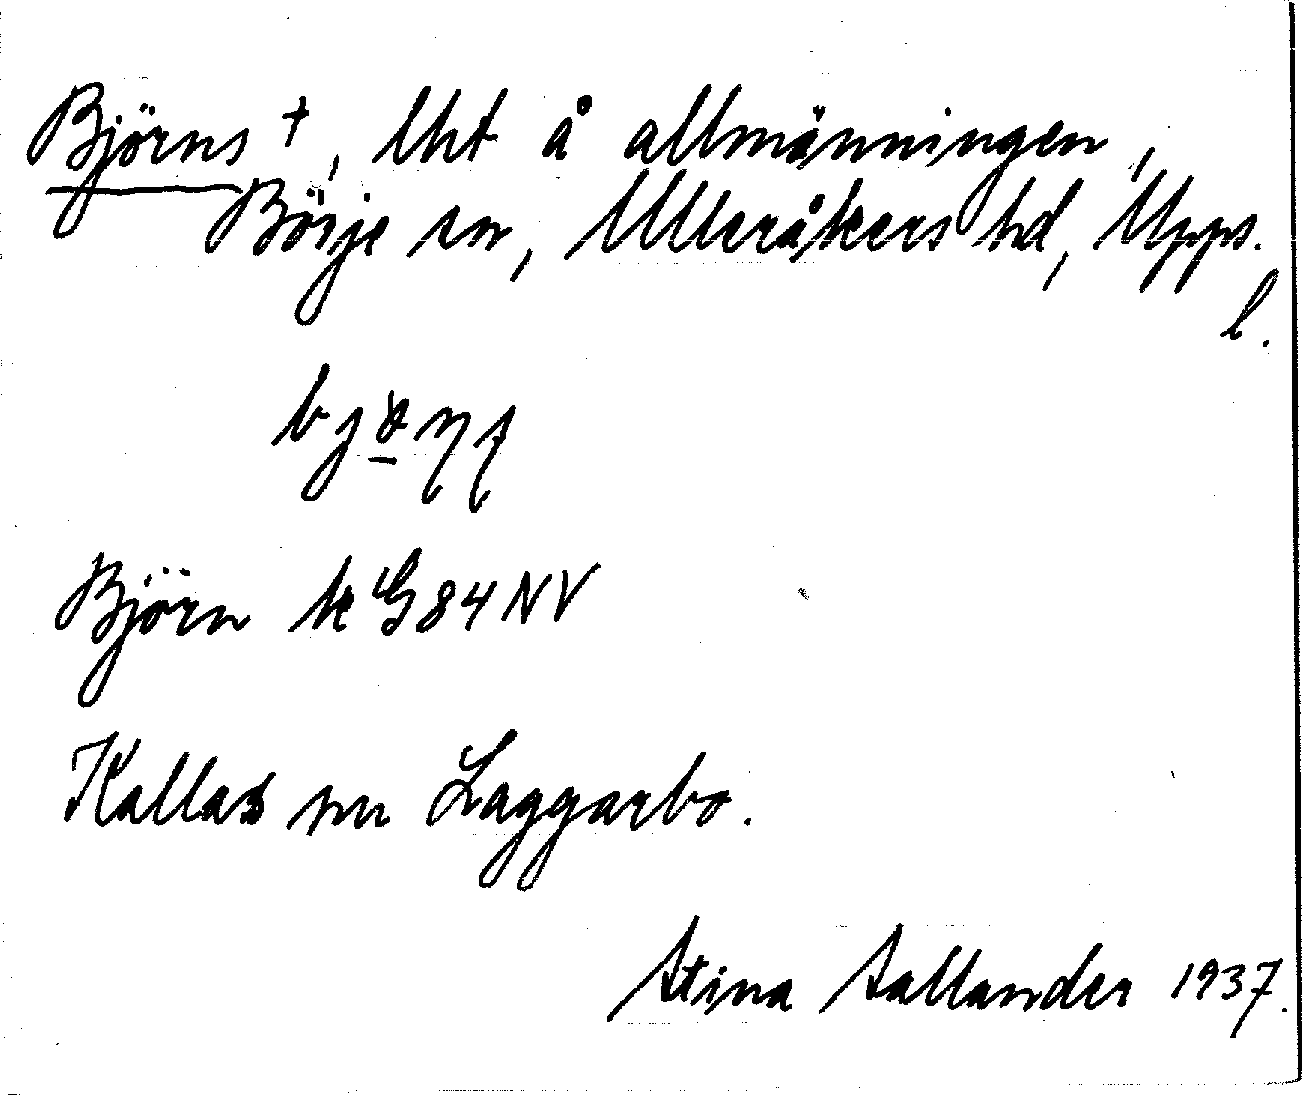 Björns †, lht å allmänningen,
Börje sn, Ulleråkers hd, Upps.
l.
Björn k G 84 NV
Kallas nu Laggarbo.
Stina Sallander 1937.